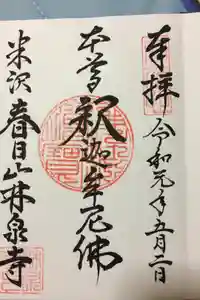 奉拝
令和元年五月二日
本尊
釈迦牟尼佛
米沢
春日山林泉寺